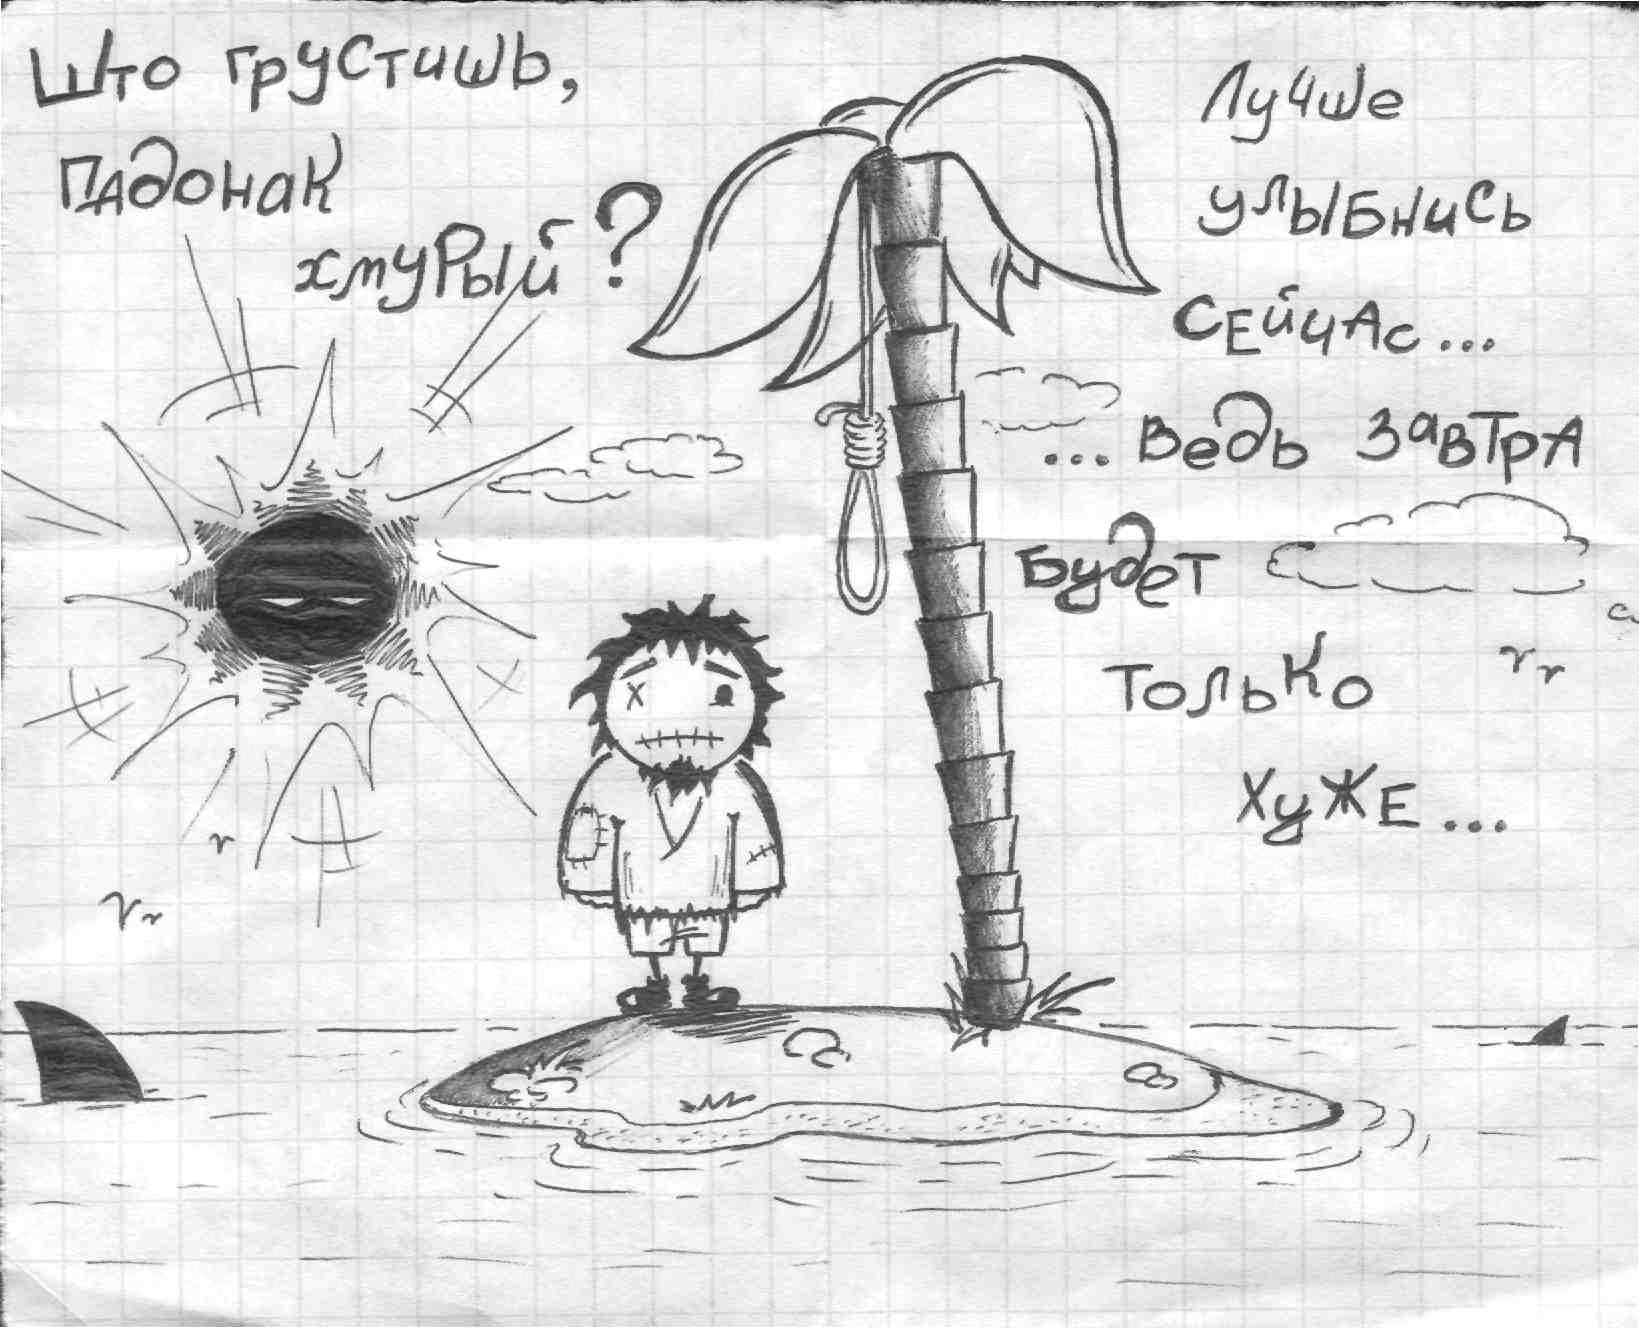 што грустишь,
падонак
хмурый?
Лучше
улыбнись
сейчас...
...ведь завтра
будет
только
хуже...